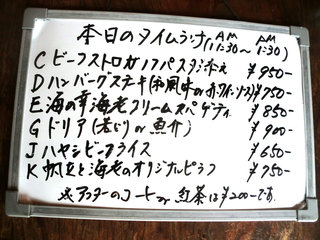 本日のタイムランチ(AM 11:30~PM 1:30)
C ビーフストロガノフパスタ添え ¥950-
D ハンバーグステキ(和風味or赤ワインソース) ¥750-
E 海の幸海老クリームスパゲティ ¥850-
G ドリア(若どりor魚介) ¥900-
J ハヤシビーフライス ¥650-
K 帆立と海老のオリジナルピラフ ¥750-
※アフターのコーヒーor紅茶は¥200-です。